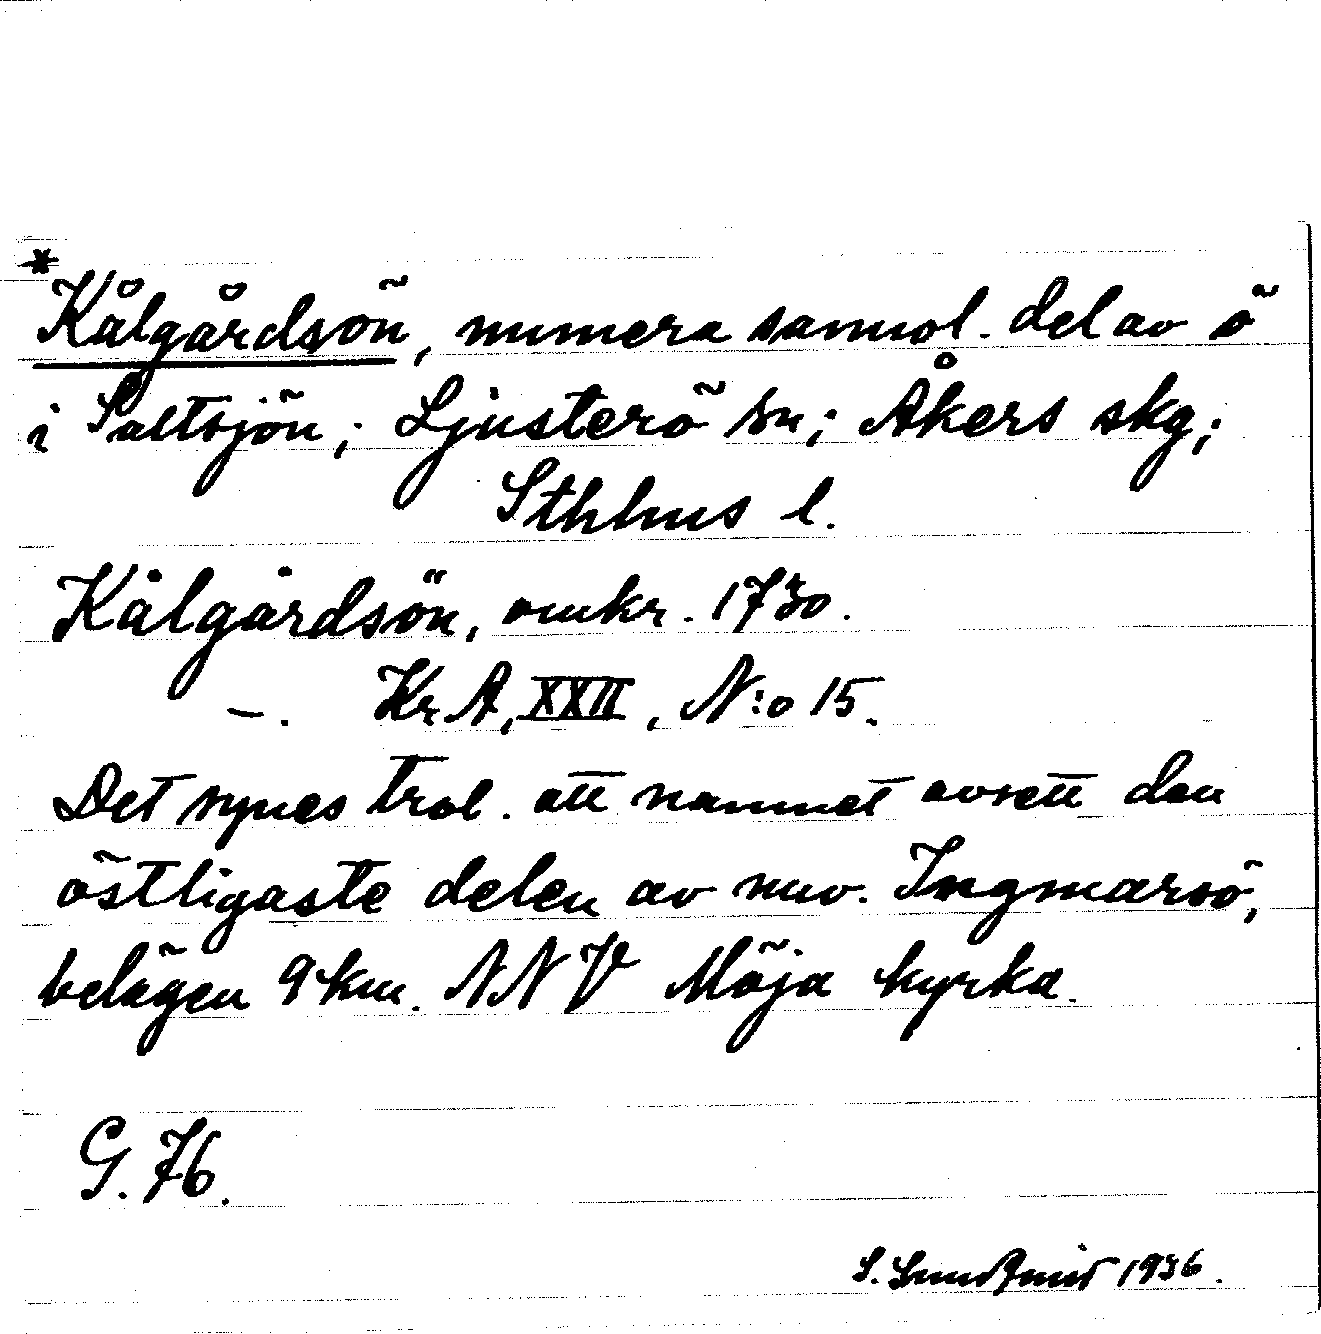 *Kålgårdsön, numera sannol. del av ö
i Saltsjön; Ljusterö sn; Åkers skg;
Sthlms l.
Kålgårdsön, omkr. 1730.
—. KrA, XXII, N:o 15.
Det synes trol. att namnet avsett den
östligaste delen av nuv. Ingmarsö,
belägen 9 km. NNV Möja kyrka.
G. 76.
S. 1936.